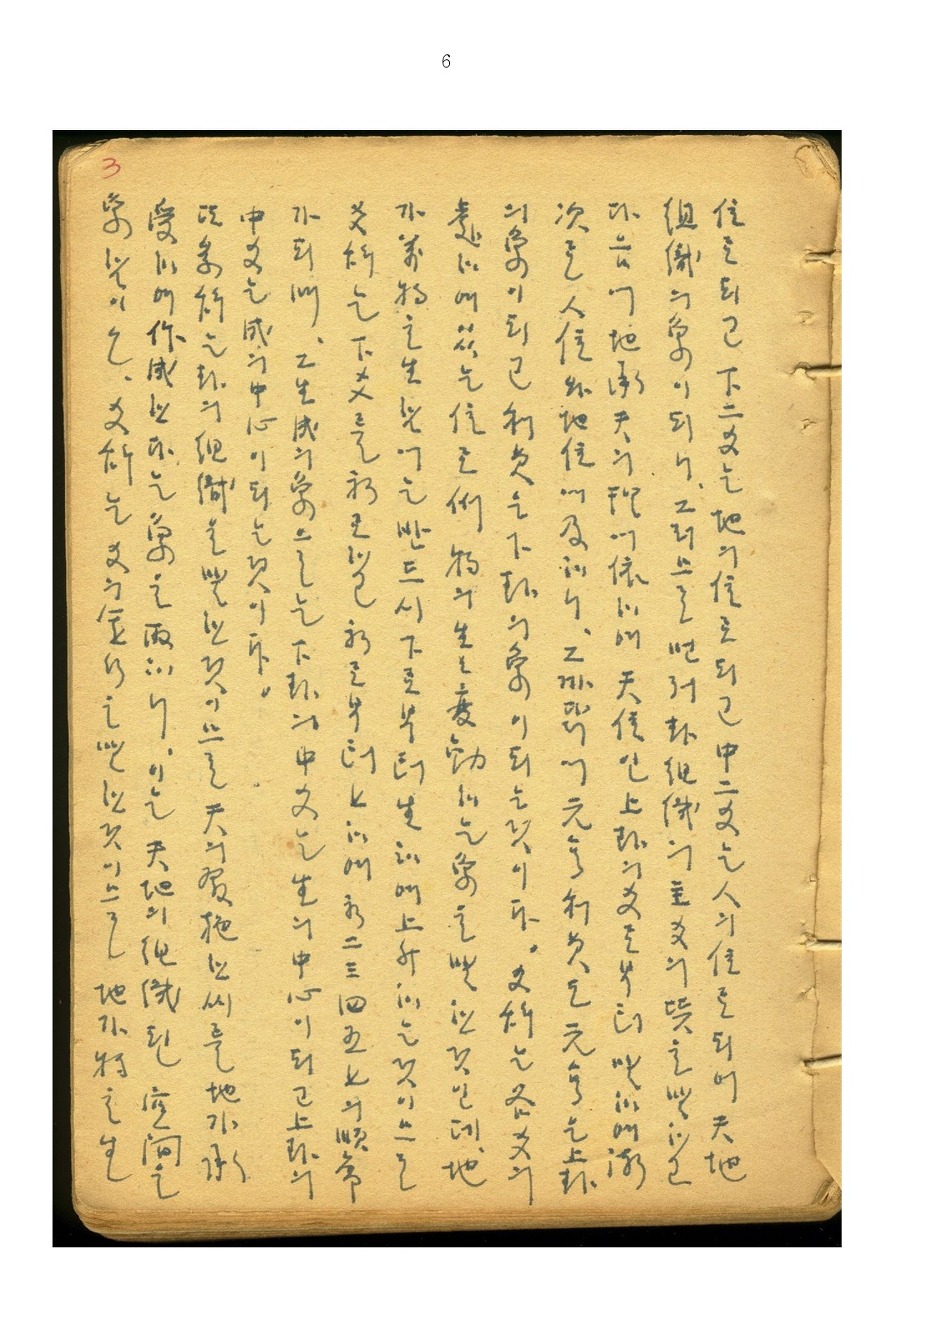 6
3
位로 되고 下二爻는 地의 位로 되고 中二爻는 人의 位로 되며 天地
組織의 象이 되니, 그러므로 먼저 卦 組織의 主爻의 뜻을 말하고
다음에 地承天의 理에 依하여 天位인 上卦의 爻로부터 말하여 漸
次로 人位와 地位에 及하니, 그 까닭에 元亨利貞도 元亨은 上卦
의 象이 되고 利貞은 下卦의 象이 되는 것이다. 爻辭는 各 爻의
處하여 있는 位로 物의 生生 變動하는 象을 말한 것인데, 地
가 萬物을 生함에는 반드시 下로부터 生하여 上升하는 것이므로
爻辭는 下爻를 初로 하고 初로부터 上하여 初二三四五上의 順序
가 되며, 그 生成의 象으로는 下卦의 中爻는 生의 中心이 되고 上卦의
中爻는 成의 中心이 되는 것이다.
또 彖辭는 卦의 組織을 말한 것이므로 天의 施한 씨를 地가 承
受하여 作成한다는 象을 取하니, 이는 天地의 組織된 空間을
象함이오, 爻辭는 爻의 을 말한 것이므로 地가 物을 生